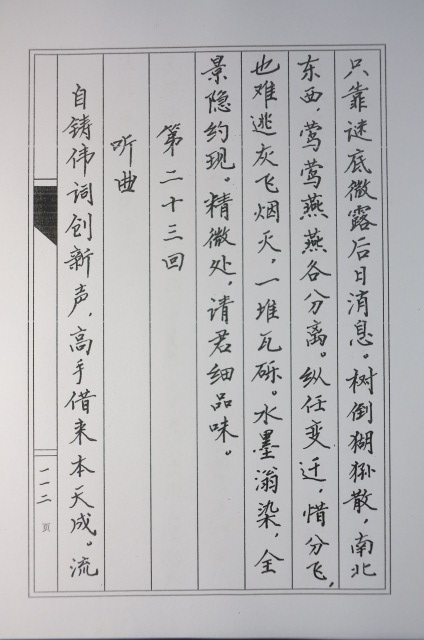 只靠谜底微露后日消息。树倒猢狲散，南北
东西，莺莺燕燕各分离。纵任变迁，惜分飞，
也难逃灰飞烟灭，一堆瓦砾。水墨滃染，全
景隐约现。精微处，请君细品味。
第二十三回
听曲
自铸伟词创新声，高手借来本天成。流
一一二页